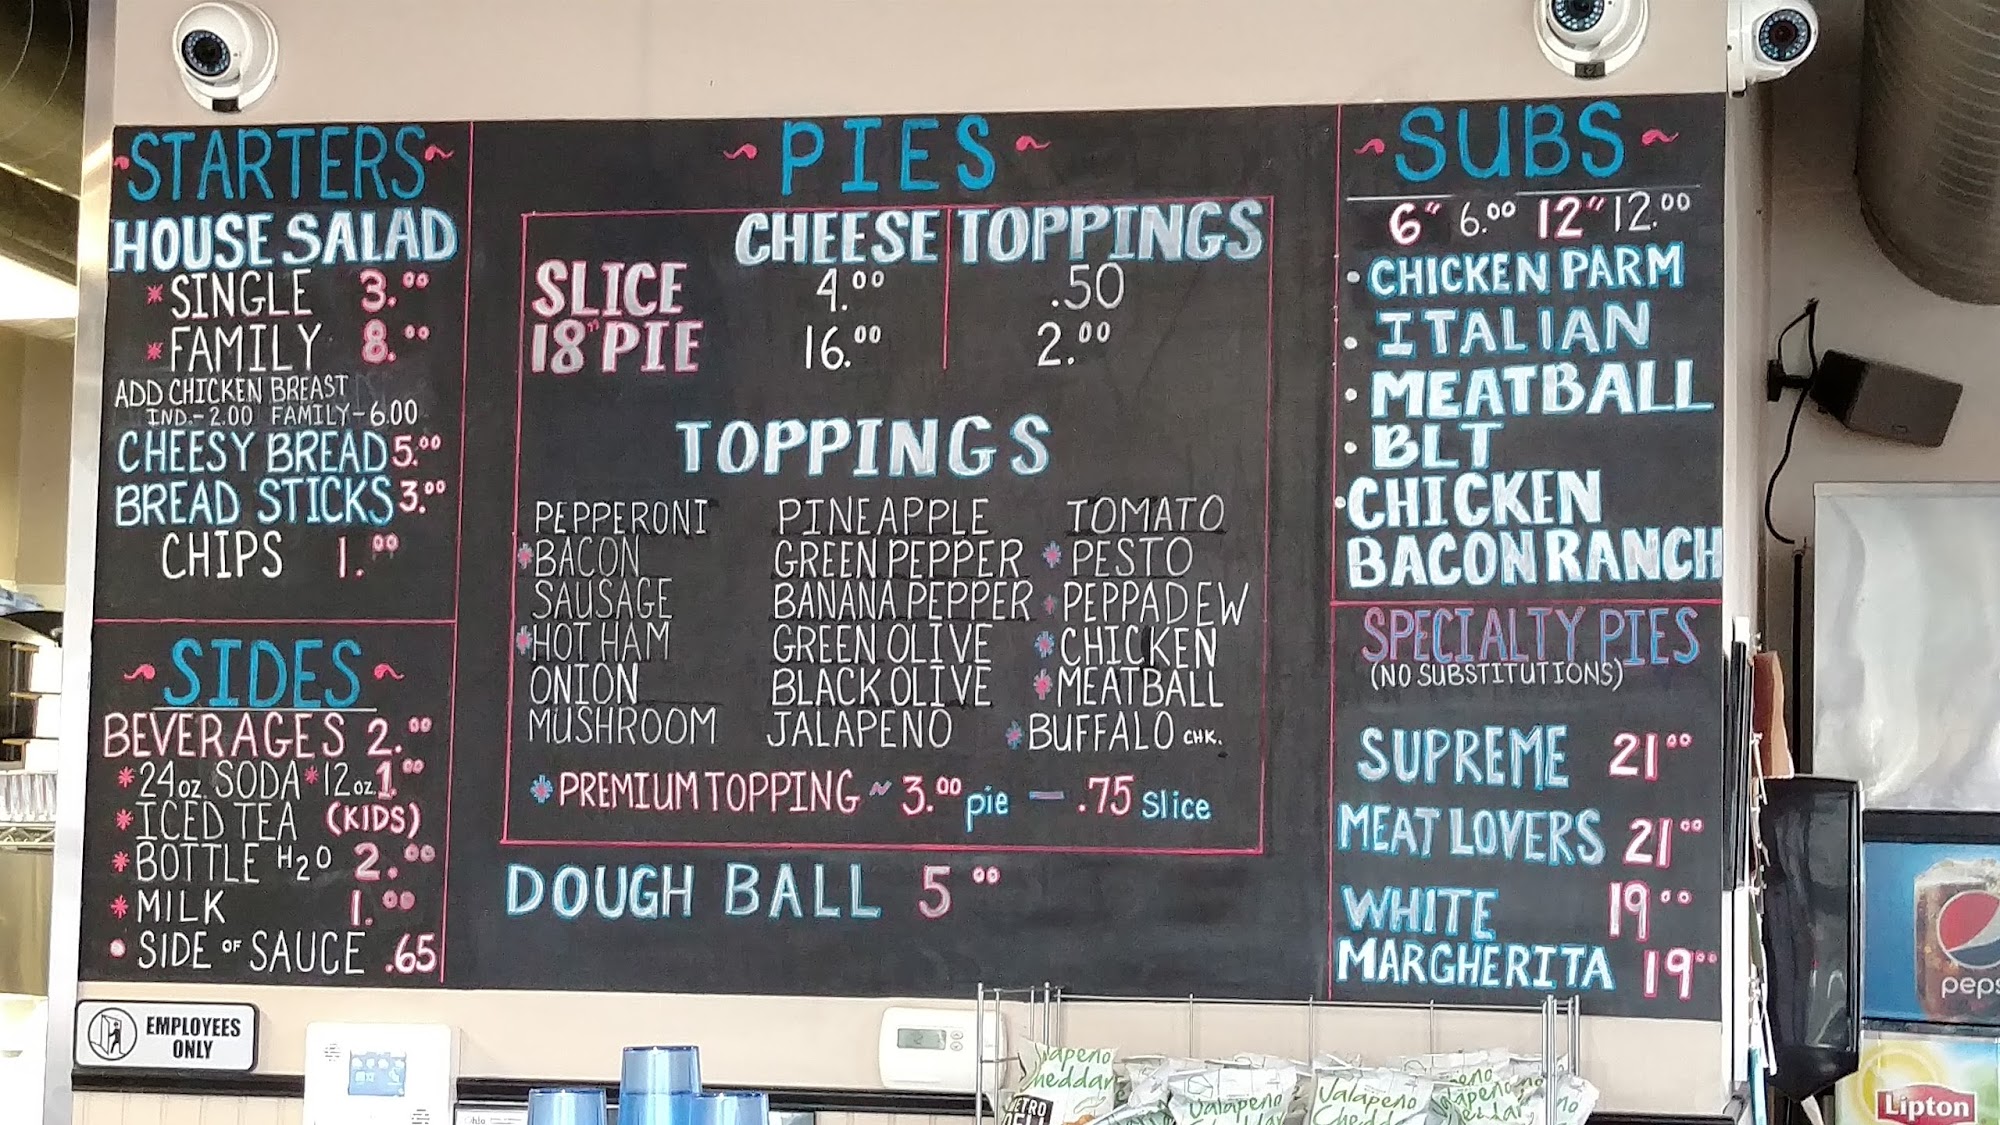 STARTERS
HOUSE SALAD
* SINGLE 3.00
* FAMILY 8.00
ADD CHICKEN BREAST
IND.-2.00 FAMILY-6.00
CHEESY BREAD 5.00
BREAD STICKS 3.00
CHIPS 1.00
SIDES
BEVERAGES 2.00
* 24oz. SODA * 12oz. 1.00
* ICED TEA (KIDS)
* BOTTLE H2O 2.00
* MILK 1.00
• SIDE OF SAUCE .65
~ PIES ~
CHEESE TOPPINGS
SLICE 4.00 .50
18" PIE 16.00 2.00
TOPPINGS
PEPPERONI PINEAPPLE TOMATO
* BACON GREEN PEPPER * PESTO
SAUSAGE BANANA PEPPER * PEPPADEW
* HOT HAM GREEN OLIVE * CHICKEN
ONION BLACK OLIVE * MEATBALL
MUSHROOM JALAPENO * BUFFALO CHK.
* PREMIUM TOPPING ~ 3.00 pie — .75 Slice
DOUGH BALL 5 00
~ SUBS ~
6" 6.00 12" 12.00
• CHICKEN PARM
• ITALIAN
• MEATBALL
• BLT
• CHICKEN
BACON RANCH
SPECIALTY PIES
(NO SUBSTITUTIONS)
SUPREME 21 00
MEAT LOVERS 21 00
WHITE 19 00
MARGHERITA 19 00
EMPLOYEES
ONLY
Jalapeno
Cheddar
Jalapeno
Jalapeno
Cheddar
peps
Lipton